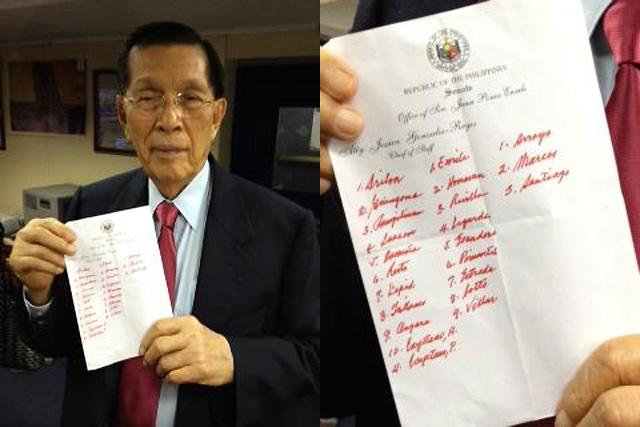 REPUBLIC OF THE PHILIPPINES
Senate
Office of Sen. Juan Ponce Enrile
Atty. Jessica Gonzales-Reyes
Chief of Staff
1. Drilon
2. Guingona
3. Pangilinan
4. Lacson
5. Osmeña
6. Recto
7. Lapid
8. Trillanes
9. Angara
10. Cayetano, A.
11. Cayetano, P.
1. Enrile
2. Honasan
3. Revilla
4. Legarda
5. Escudero
6. Pimentel
7. Estrada
8. Sotto
9. Villar
1. Arroyo
2. Marcos
3. Santiago